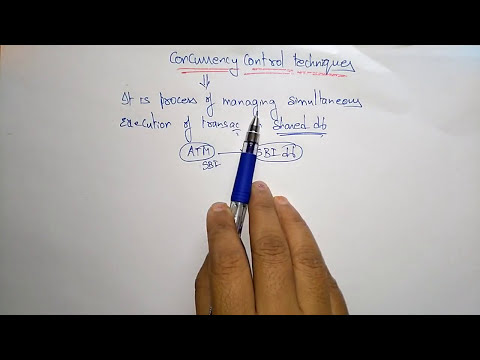 Concurrency Control techniques
It is process of managing simultaneous
Execution of transac shared db
ATM SBI db
SBI